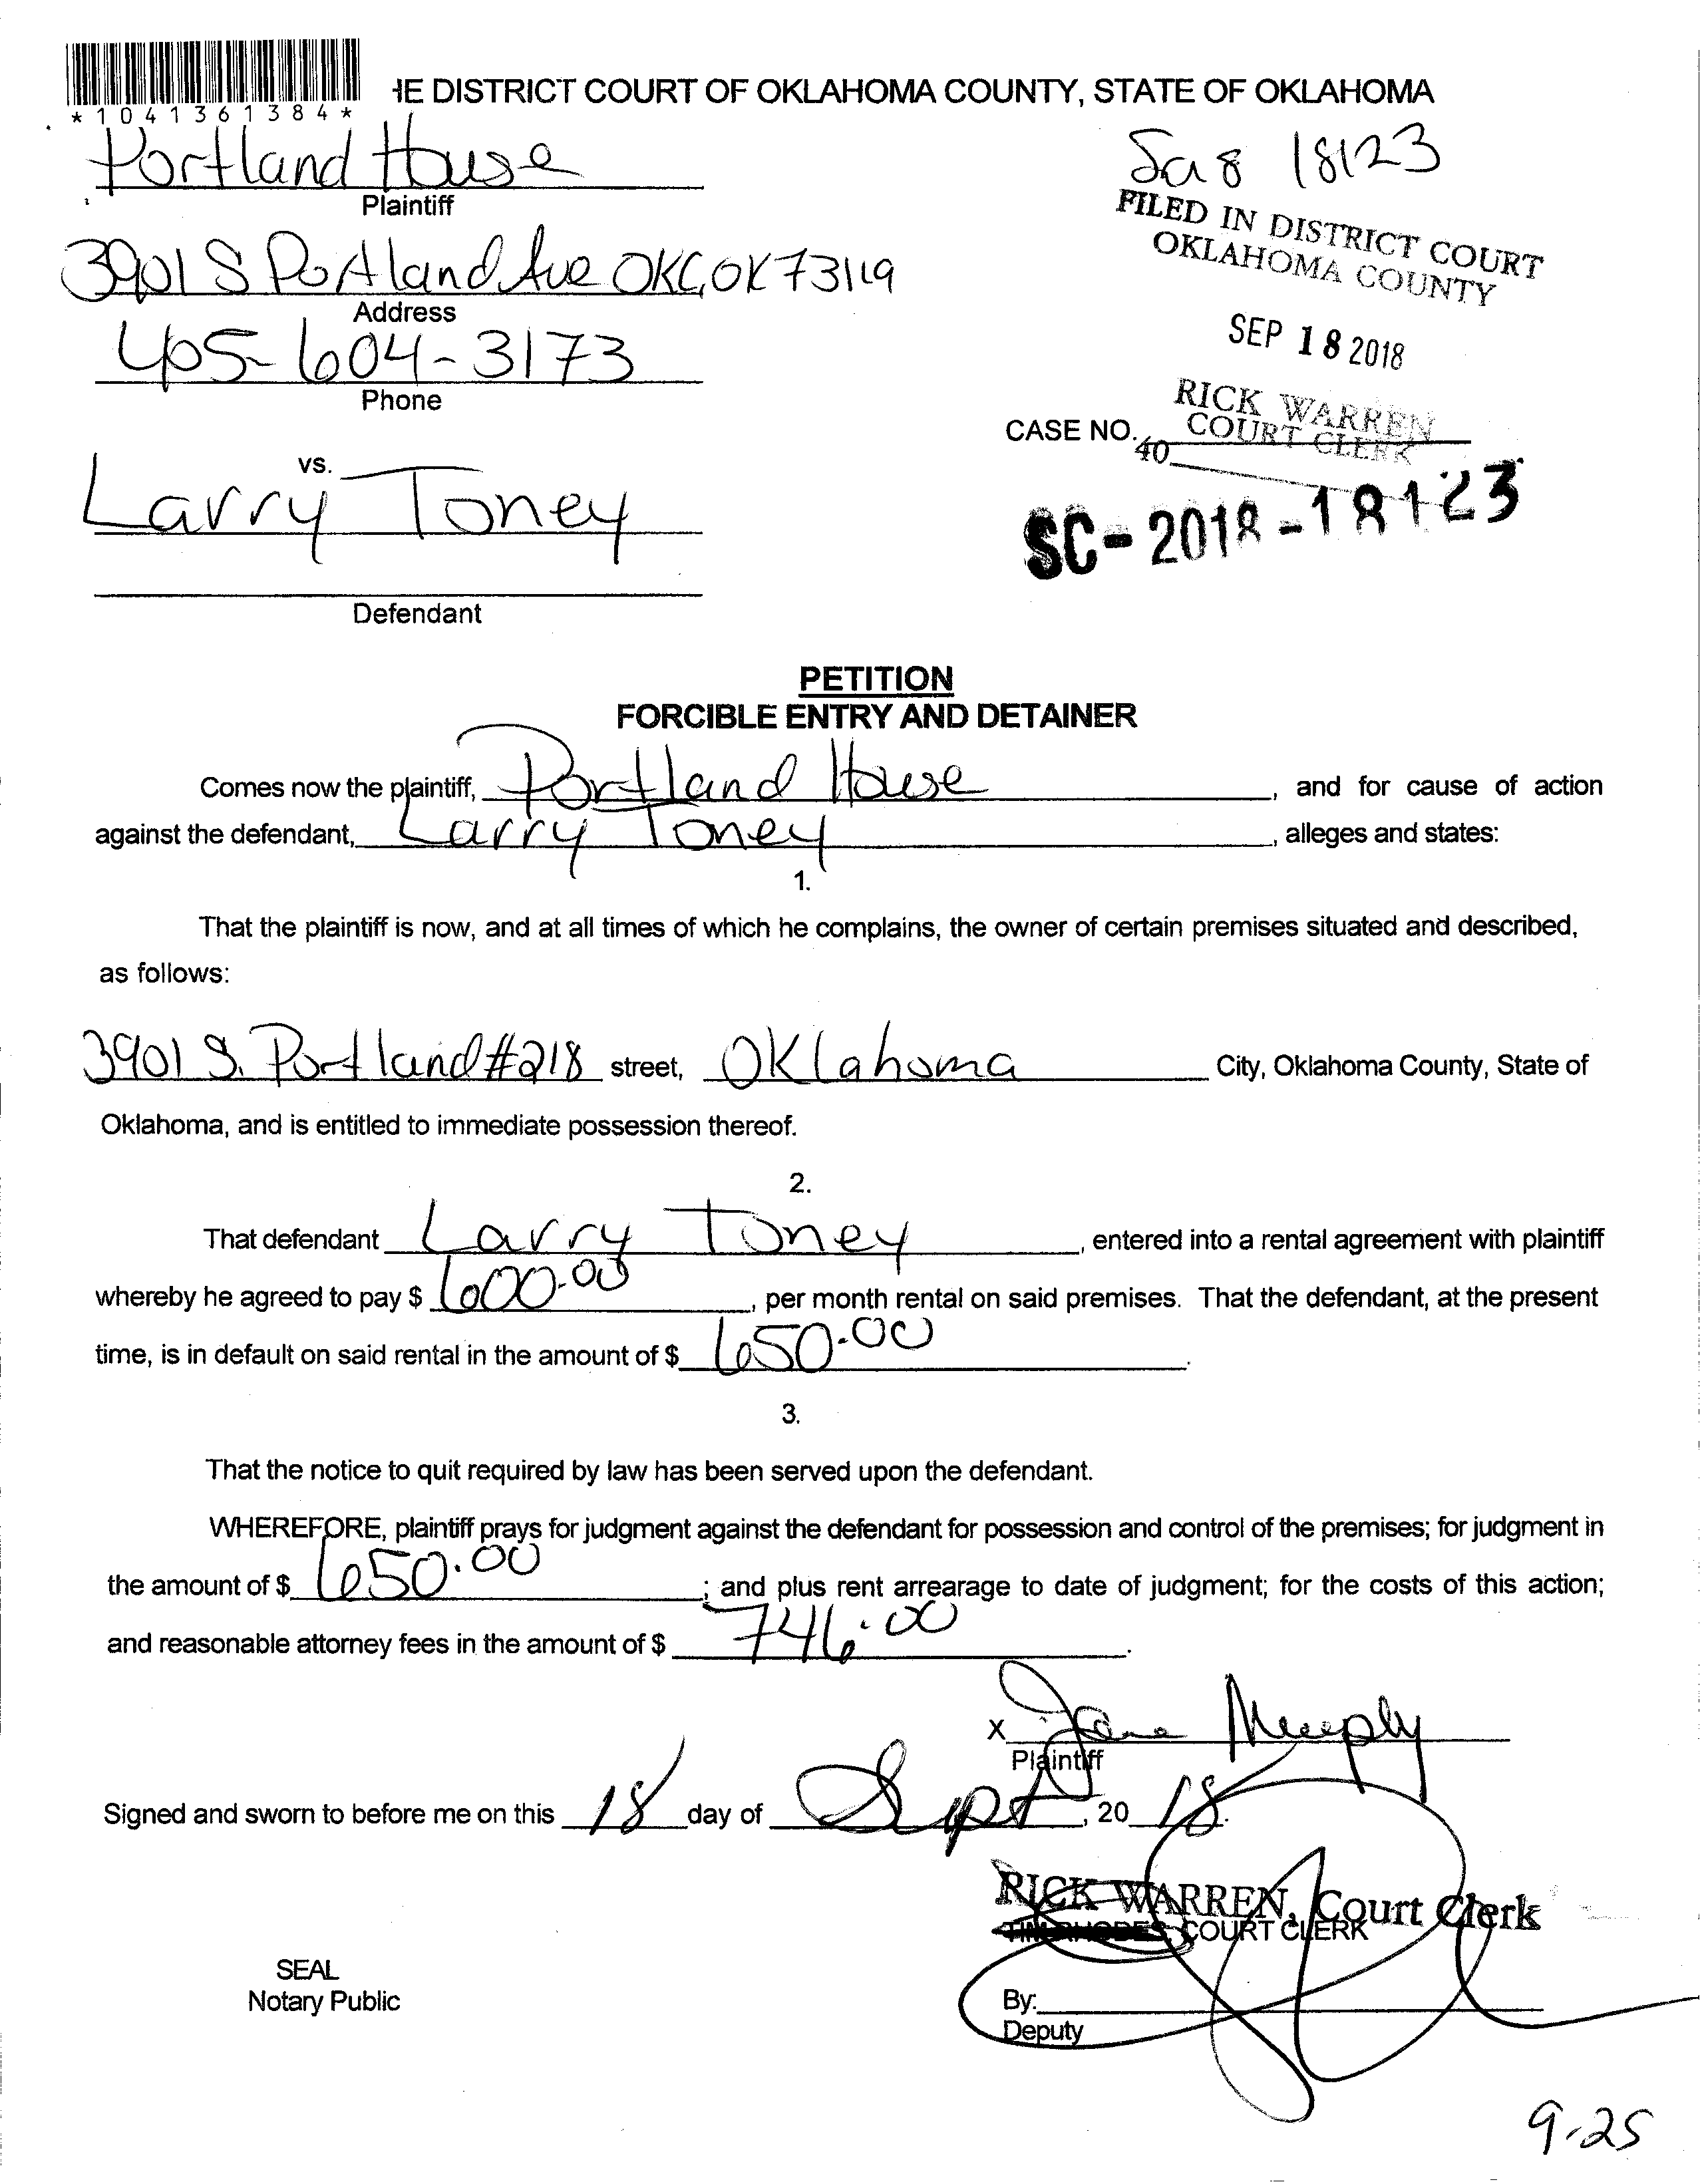 *1041361384*
HE DISTRICT COURT OF OKLAHOMA COUNTY, STATE OF OKLAHOMA
Portland House
Plaintiff
3901 S Portland Ave OKC, OK 73119
Address
405-604-3173
Phone
vs.
Larry Toney
Defendant
18123
FILED IN DISTRICT COURT
OKLAHOMA COUNTY
SEP 18 2018
RICK WARREN
COURT CLERK
CASE NO.
40
SC-2018-18123
PETITION
FORCIBLE ENTRY AND DETAINER
Comes now the plaintiff, Portland House, and for cause of action
against the defendant, Larry Toney, alleges and states:
1.
That the plaintiff is now, and at all times of which he complains, the owner of certain premises situated and described,
as follows:
3901 S. Portland #218 street, Oklahoma City, Oklahoma County, State of
Oklahoma, and is entitled to immediate possession thereof.
2.
That defendant Larry Toney, entered into a rental agreement with plaintiff
whereby he agreed to pay $ 600.00, per month rental on said premises. That the defendant, at the present
time, is in default on said rental in the amount of $ 650.00.
3.
That the notice to quit required by law has been served upon the defendant.
WHEREFORE, plaintiff prays for judgment against the defendant for possession and control of the premises; for judgment in
the amount of $ 650.00; and plus rent arrearage to date of judgment; for the costs of this action;
and reasonable attorney fees in the amount of $ 746.00.
X Jane Murphy
Plaintiff
Signed and sworn to before me on this 18 day of Sept, 20 18.
RICK WARREN, Court Clerk
TIM RHODES, COURT CLERK
SEAL
Notary Public
By:
Deputy
9-25